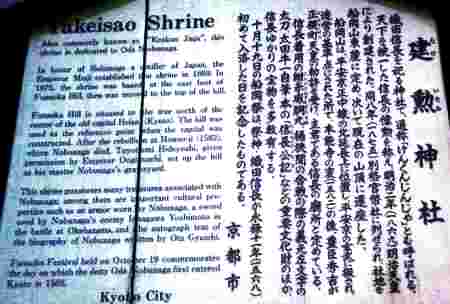 Takeisao Shrine
Also commonly known as "Kenkun Jinja", this
shrine is dedicated to Oda Nobunaga.
In honor of Nobunaga a unifier of Japan, the
Emperor Meiji established this shrine in 1869. In
1875, the shrine was located at the east foot of
Funaoka Hill, then was moved to the top of the hill.
Funaoka Hill is situated to the true north of the
center of the old capital Heian (Kyoto). The hill was
used as the reference point when the capital was
constructed. After the rebellion at Honno-ji (1582),
where Nobunaga died, Toyotomi Hideyoshi, given
permission by Emperor Oogimachi, set up the hill
as his master Nobunaga's graveyard.
This shrine possesses many treasures associated with
Nobunaga; among them are important cultural pro-
perties such as an armor worn by Nobunaga, a sword
used by Nobunaga's enemy Imagawa Yoshimoto in
the battle at Okehazama, and the autograph text of
the biography of Nobunaga written by Ota Gyuichi.
Funaoka Festival held on October 19 commemorates
the day on which the deity Oda Nobunaga first entered
Kyoto in 1568.
Kyoto City
建勲神社
織田信長を祀る神社で、通称「けんくんじんじゃ」とも呼ばれる。
天下を統一した信長の偉勲を称え、明治二年(一八六九)明治天皇
により創建された。同八年(一八七五)別格官幣社に列せられ、社地を
船岡山東麓に定め、次いで現在の山頂に遷座した。
船岡山は、平安京正中線の北延長上に位置し、平安京の
造営の基点とされた所で、本能寺の変(一五八二)の後、豊臣秀吉が
正親町天皇の勅許を受け、主君である信長の廟所と定めている。
信長着用の紺糸威胴丸、桶狭間の合戦の際の義元左文字の
太刀、太田牛一自筆本の「信長公記」などの重要文化財のほか、
信長ゆかりの宝物を多数有する。
十月十九日の船岡祭は、祭神 織田信長が永禄十一年(一五六八)
初めて入洛した日を記念したものである。
京都市